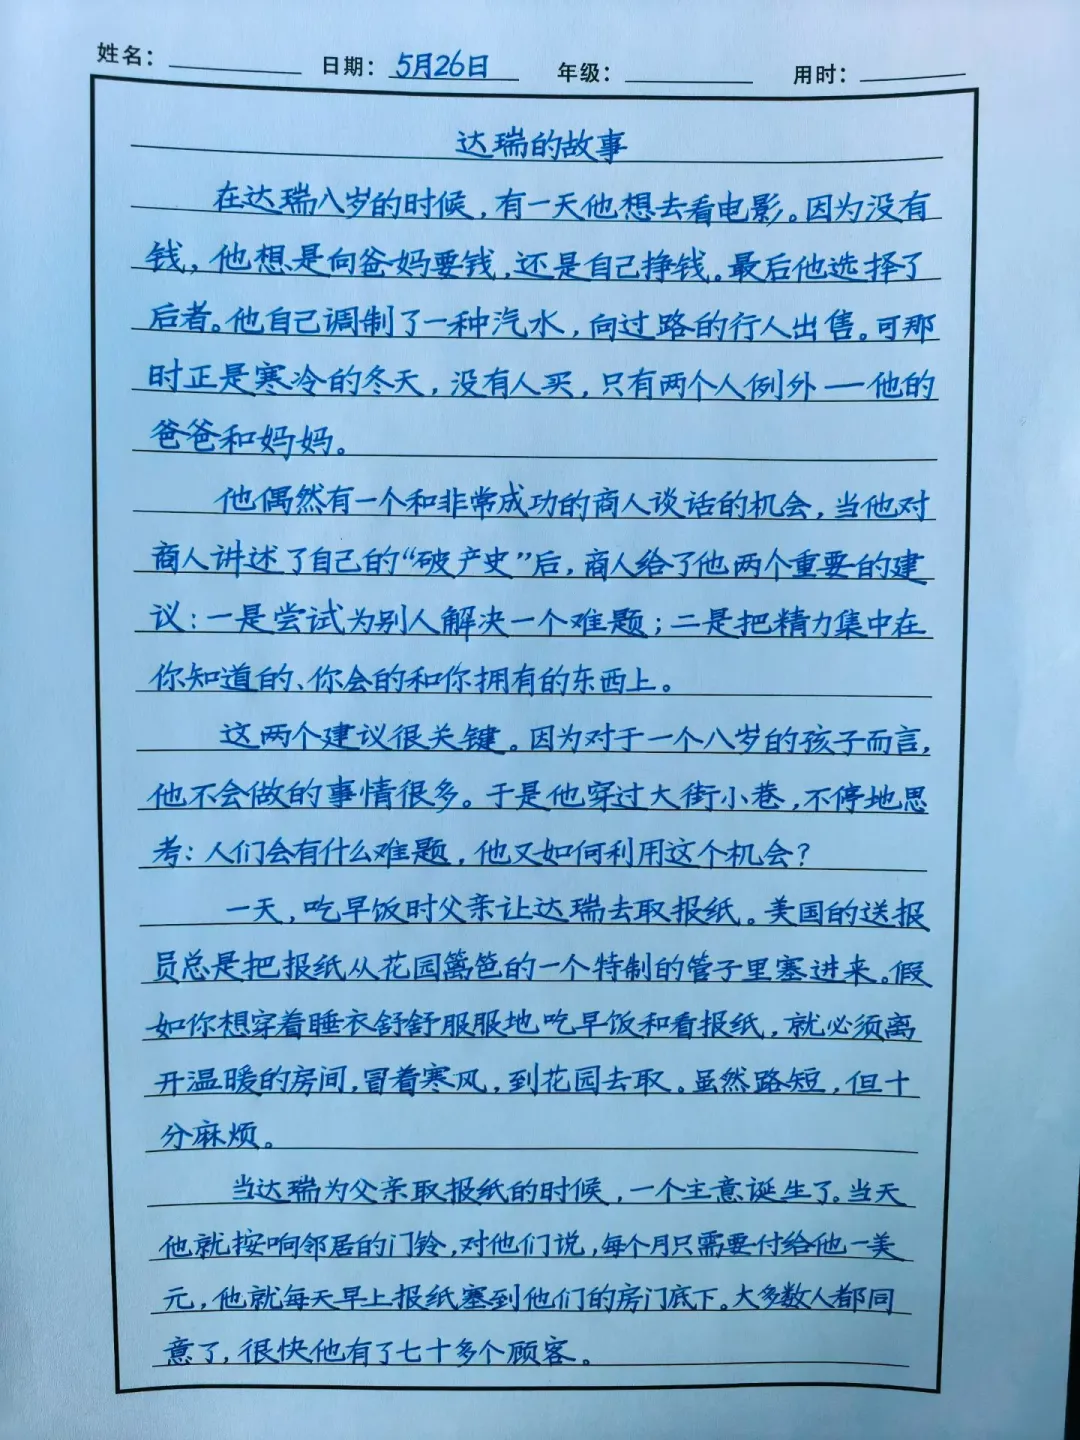 姓名： 日期：5月26日 年级： 用时：
达瑞的故事
在达瑞八岁的时候，有一天他想去看电影。因为没有
钱，他想是向爸妈要钱，还是自己挣钱。最后他选择了
后者。他自己调制了一种汽水，向过路的行人出售。可那
时正是寒冷的冬天，没有人买，只有两个人例外——他的
爸爸和妈妈。
他偶然有一个和非常成功的商人谈话的机会，当他对
商人讲述了自己的“破产史”后，商人给了他两个重要的建
议：一是尝试为别人解决一个难题；二是把精力集中在
你知道的、你会的和你拥有的东西上。
这两个建议很关键。因为对于一个八岁的孩子而言，
他不会做的事情很多。于是他穿过大街小巷，不停地思
考：人们会有什么难题，他又如何利用这个机会？
一天，吃早饭时父亲让达瑞去取报纸。美国的送报
员总是把报纸从花园篱笆的一个特制的管子里塞进来。假
如你想穿着睡衣舒舒服服地吃早饭和看报纸，就必须离
开温暖的房间，冒着寒风，到花园去取。虽然路短，但十
分麻烦。
当达瑞为父亲取报纸的时候，一个主意诞生了。当天
他就按响邻居的门铃，对他们说，每个月只需要付给他一美
元，他就每天早上报纸塞到他们的房门底下。大多数人都同
意了，很快他有了七十多个顾客。